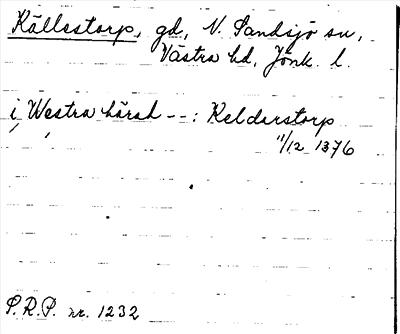 Källestorp, gd, N. Sandsjö sn,
Västra hd, Jönk. l.
i Westra härad --: Kelderstorp
11/12 1376
S.R.P. nr. 1232